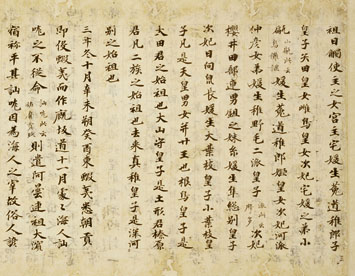 祖日觸使主之女宮主宅媛生菟道稚郎子
皇子矢田皇女雌鳥皇女次妃宅媛之弟小
甂媛生菟道稚郎姬皇女次妃河派
仲彥女弟媛生稚野毛二派皇子派此云次妃
櫻井田部連男鉏之妹糸媛生隼總別皇子
次妃日向泉長媛生大葉枝皇子小葉枝皇
子凡是天皇男女并廿王也根鳥皇子是
大田君之始祖也大山守皇子是土形君榛原
君凡二族之始祖也去來真稚皇子是深河
別之始祖也
三年冬十月辛未朔癸酉東蝦夷悉朝貢
即役蝦夷而作厩坂道十一月處々海人訕
哤之不從命訕哤此云則遣阿曇連祖大濱
宿祢平其訕哤因為海人之宰故俗人諺